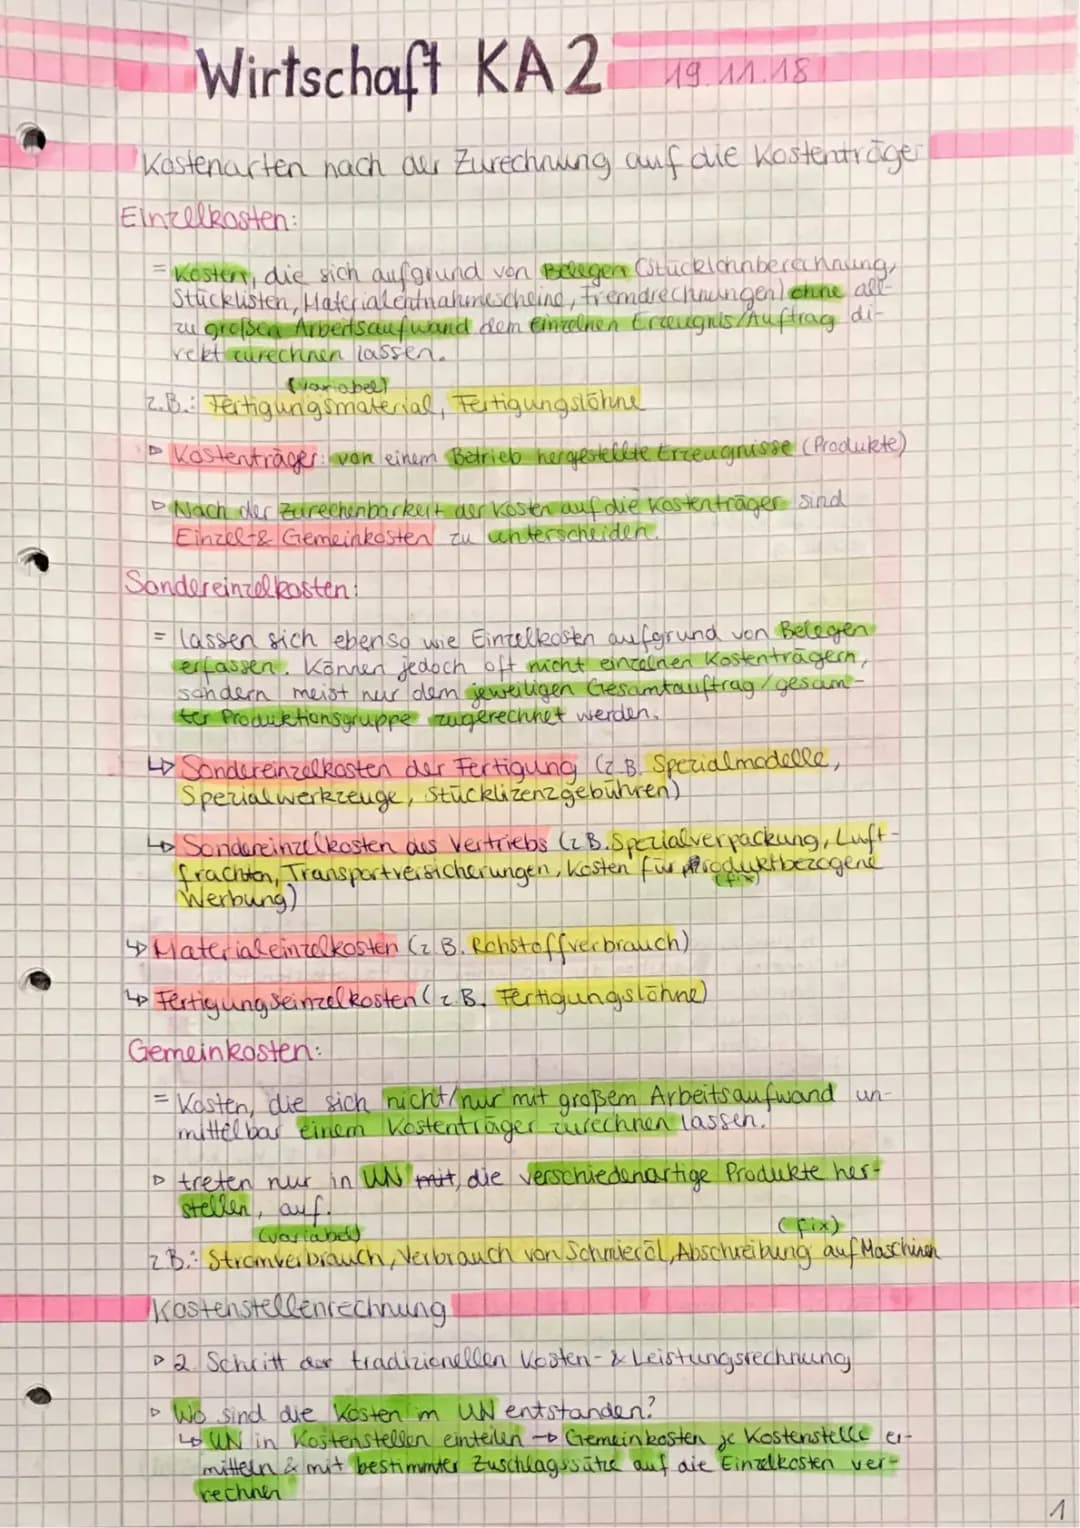 Wirtschaft KA2 19.11.18
Kostenarten nach der Zurechnung auf die Kostenträger
Einzelkosten:
= Kosten, die sich aufgrund von Belegen (Stücklohnberechnung,
Stücklisten, Materialentnahmescheine, Fremdrechnungen) ohne all-
zu großen Arbeitsaufwand dem einzelnen Erzeugnis/Auftrag di-
rekt zurechnen lassen.
(variabel)
z.B.: Fertigungsmaterial, Fertigungslöhne
▷ Kostenträger: von einem Betrieb hergestellte Erzeugnisse (Produkte)
▷ Nach der Zurechenbarkeit der Kosten auf die Kostenträger sind
Einzel- & Gemeinkosten zu unterscheiden.
Sondereinzelkosten:
= lassen sich ebenso wie Einzelkosten aufgrund von Belegen
erfassen. Können jedoch oft nicht einzelnen Kostenträgern,
sondern meist nur dem jeweiligen Gesamtauftrag/gesam-
ter Produktionsgruppe zugerechnet werden.
↳ Sondereinzelkosten der Fertigung (z.B. Spezialmodelle,
Spezialwerkzeuge, Stücklizenzgebühren)
↳ Sondereinzelkosten des Vertriebs (z.B. Spezialverpackung, Luft-
frachten, Transportversicherungen, Kosten für produktbezogene
(fix)
Werbung)
↳ Materialeinzelkosten (z.B. Rohstoffverbrauch)
↳ Fertigungseinzelkosten (z.B. Fertigungslöhne)
Gemeinkosten:
= Kosten, die sich nicht/nur mit großem Arbeitsaufwand un-
mittelbar einem Kostenträger zurechnen lassen.
▷ treten nur in UN mit, die verschiedenartige Produkte her-
stellen, auf.
(variabel) (fix)
z.B.: Stromverbrauch, Verbrauch von Schmieröl, Abschreibung auf Maschinen
Kostenstellenrechnung
▷ 2 Schritt der tradizionellen Kosten- & Leistungsrechnung
▷ Wo sind die Kosten im UN entstanden?
↳ UN in Kostenstellen einteilen → Gemeinkosten je Kostenstelle er-
mitteln & mit bestimmter Zuschlagssätze auf die Einzelkosten ver-
rechnen
1